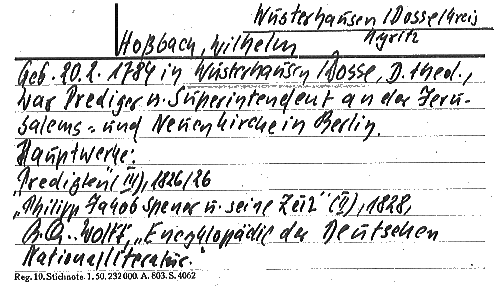 Wusterhausen/Dosse Kreis
Kyritz
Hoßbach, Wilhelm
Geb. 20.2.1784 in Wusterhausen/Dosse, D. theol.,
war Prediger u. Superintendent an der Jeru-
salems- und Neuenkirche in Berlin.
Hauptwerke:
"Predigten" (IV), 1826/26
"Philipp Jakob Spener u. seine Zeit" (II), 1828,
Wolff, "Enzyklopädie der Deutschen
Nationalliteratur."
Reg. 10. Stichnote. 1. 50. 232 000. A. 803. S. 4062